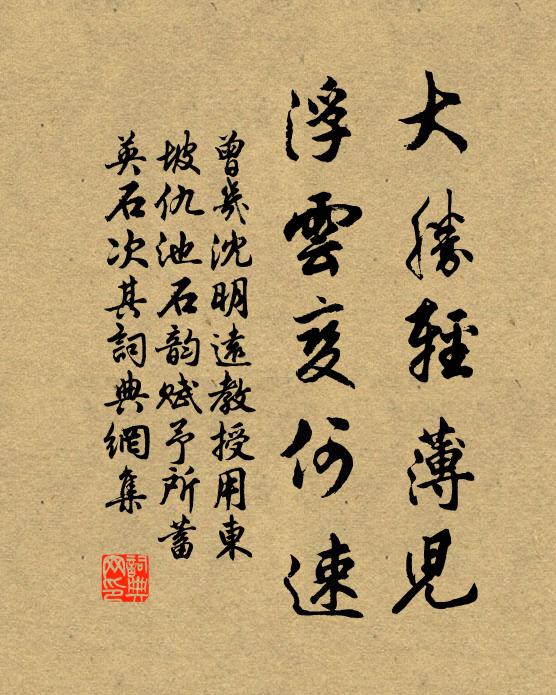 大勝輕薄兒
浮雲変何速
曾幾沈明遠教授用東
坡仇池石韵赋予所蓄
英石次其詞典網集
詞典
网印